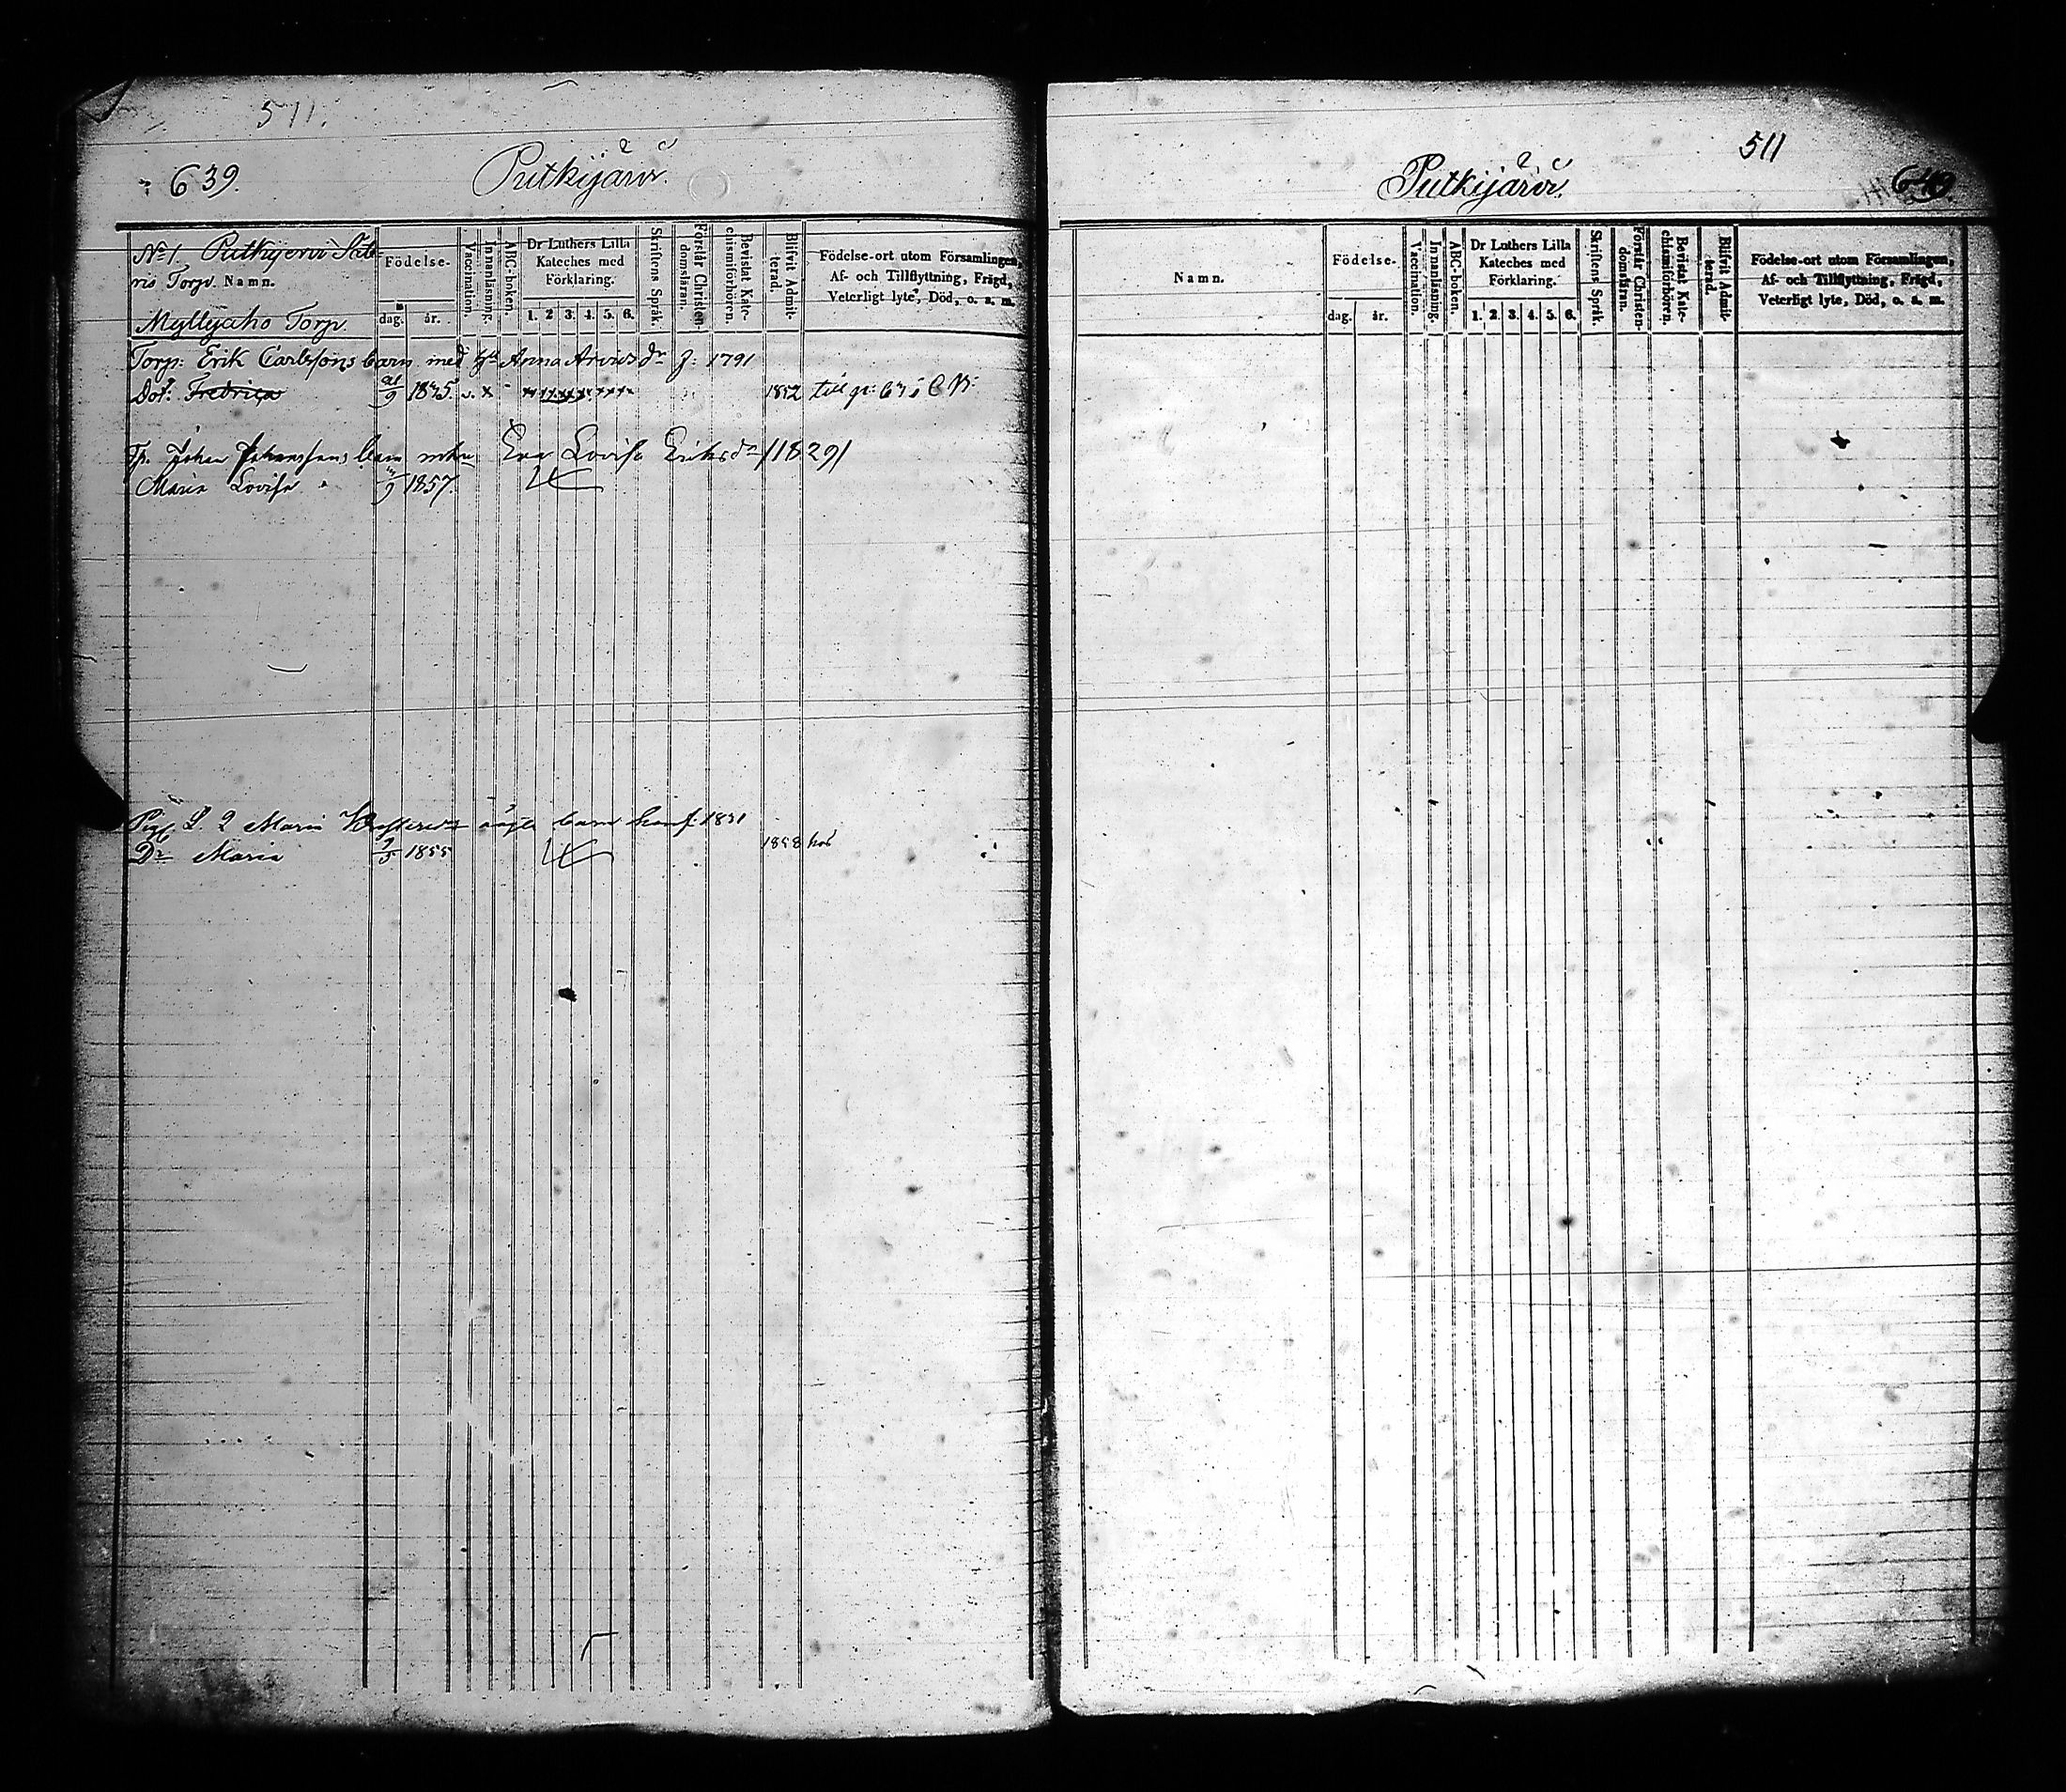 511.
639.
Putkijärvi.
No 1. Putkijervi
ris Torp. Namn.
Myllyaho Torp.
Födelse-
dag. år.
Vaccination.
Innanläsning.
ABC-boken.
Dr Luthers Lilla
Kateches med
Förklaring.
1. 2 3. 4. 5. 6.
Skriftens Språk.
Förstår Christen-
domsläran.
Bevistat Kate-
chismiförhören.
Blifvit Admit-
terad.
Födelse-ort utom Församlingen,
Af- och Tillflyttning, Frägd,
Veterligt lyte, Död, o. s. m.
Torp: Erik Carlssons barn med Anna f: 1791
Dot: Fredrica 21/9 1835. 1852 till p:
Tp. Johan Johanssons barn Eva Lovisa Eriksdr /1829/
Maria Lovisa 1857.
L. 2 Maria barn
Dr Maria 1855 1858
511
Putkijärvi.
Namn.
Födelse-
dag. år.
Vaccination.
Innanläsning.
ABC-boken.
Dr Luthers Lilla
Kateches med
Förklaring.
1. 2. 3. 4. 5. 6.
Skriftens Språk.
Förstår Christen-
domsläran.
Bevistat Kate-
chismiförhören.
Blifvit Admit-
terad.
Födelse-ort utom Församlingen,
Af- och Tillflyttning, Frägd,
Veterligt lyte, Död, o. s. m.